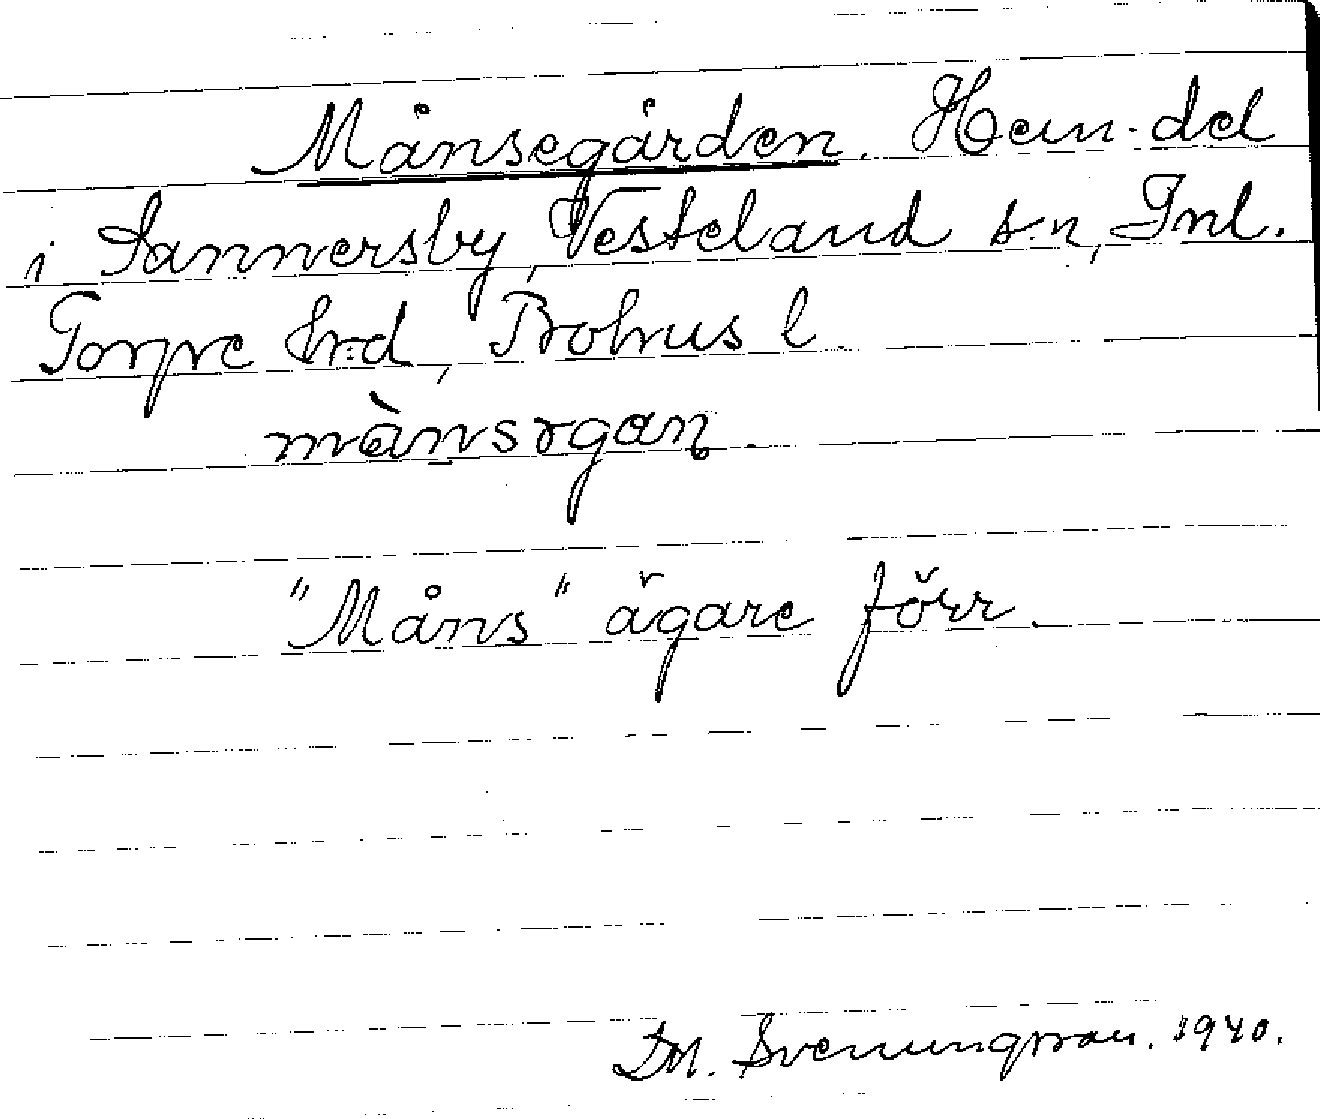 Månsegården. Hem. del
i Sannersby, Vesteland s:n, Inl.
Torpe h:d, Bohus l.
mànsrgan.
"Måns" ägare förr.
D.M. Svenungsson. 1940.